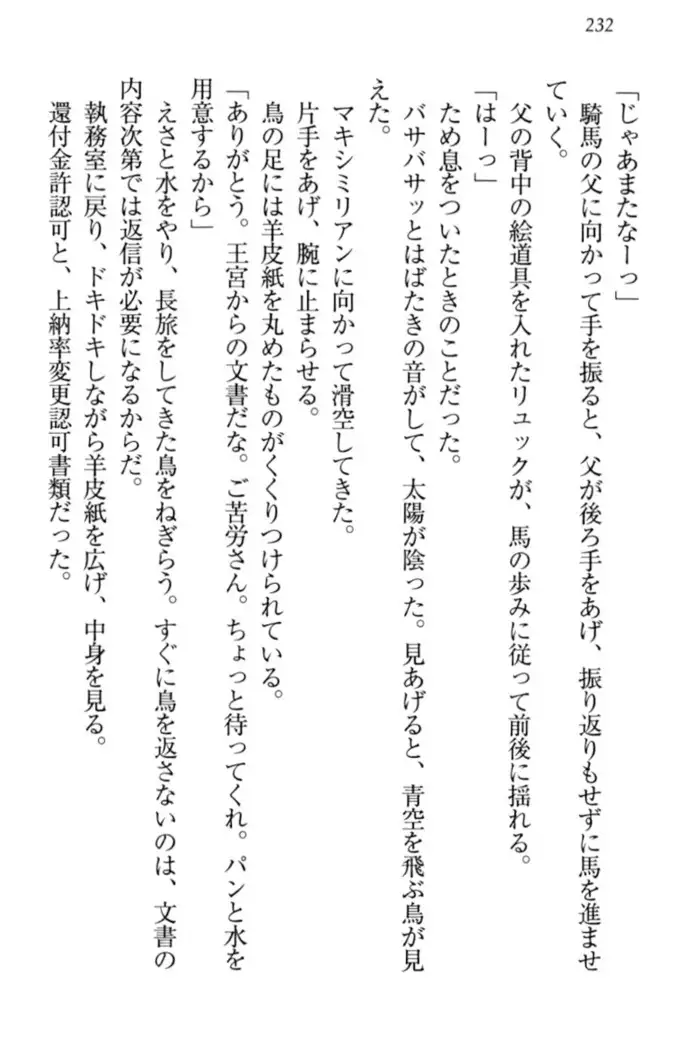 232
「じゃあまたなーっ」
騎馬の父に向かって手を振ると、父が後ろ手をあげ、振り返りもせずに馬を進ませ
ていく。
父の背中の絵道具を入れたリュックが、馬の歩みに従って前後に揺れる。
「はーっ」
ため息をついたときのことだった。
バサバサッとはばたきの音がして、太陽が陰った。見あげると、青空を飛ぶ鳥が見
えた。
マキシミリアンに向かって滑空してきた。
片手をあげ、腕に止まらせる。
鳥の足には羊皮紙を丸めたものがくくりつけられている。
「ありがとう。王宮からの文書だな。ご苦労さん。ちょっと待ってくれ。パンと水を
用意するから」
えさと水をやり、長旅をしてきた鳥をねぎらう。すぐに鳥を返さないのは、文書の
内容次第では返信が必要になるからだ。
執務室に戻り、ドキドキしながら羊皮紙を広げ、中身を見る。
還付金許認可と、上納率変更認可書類だった。